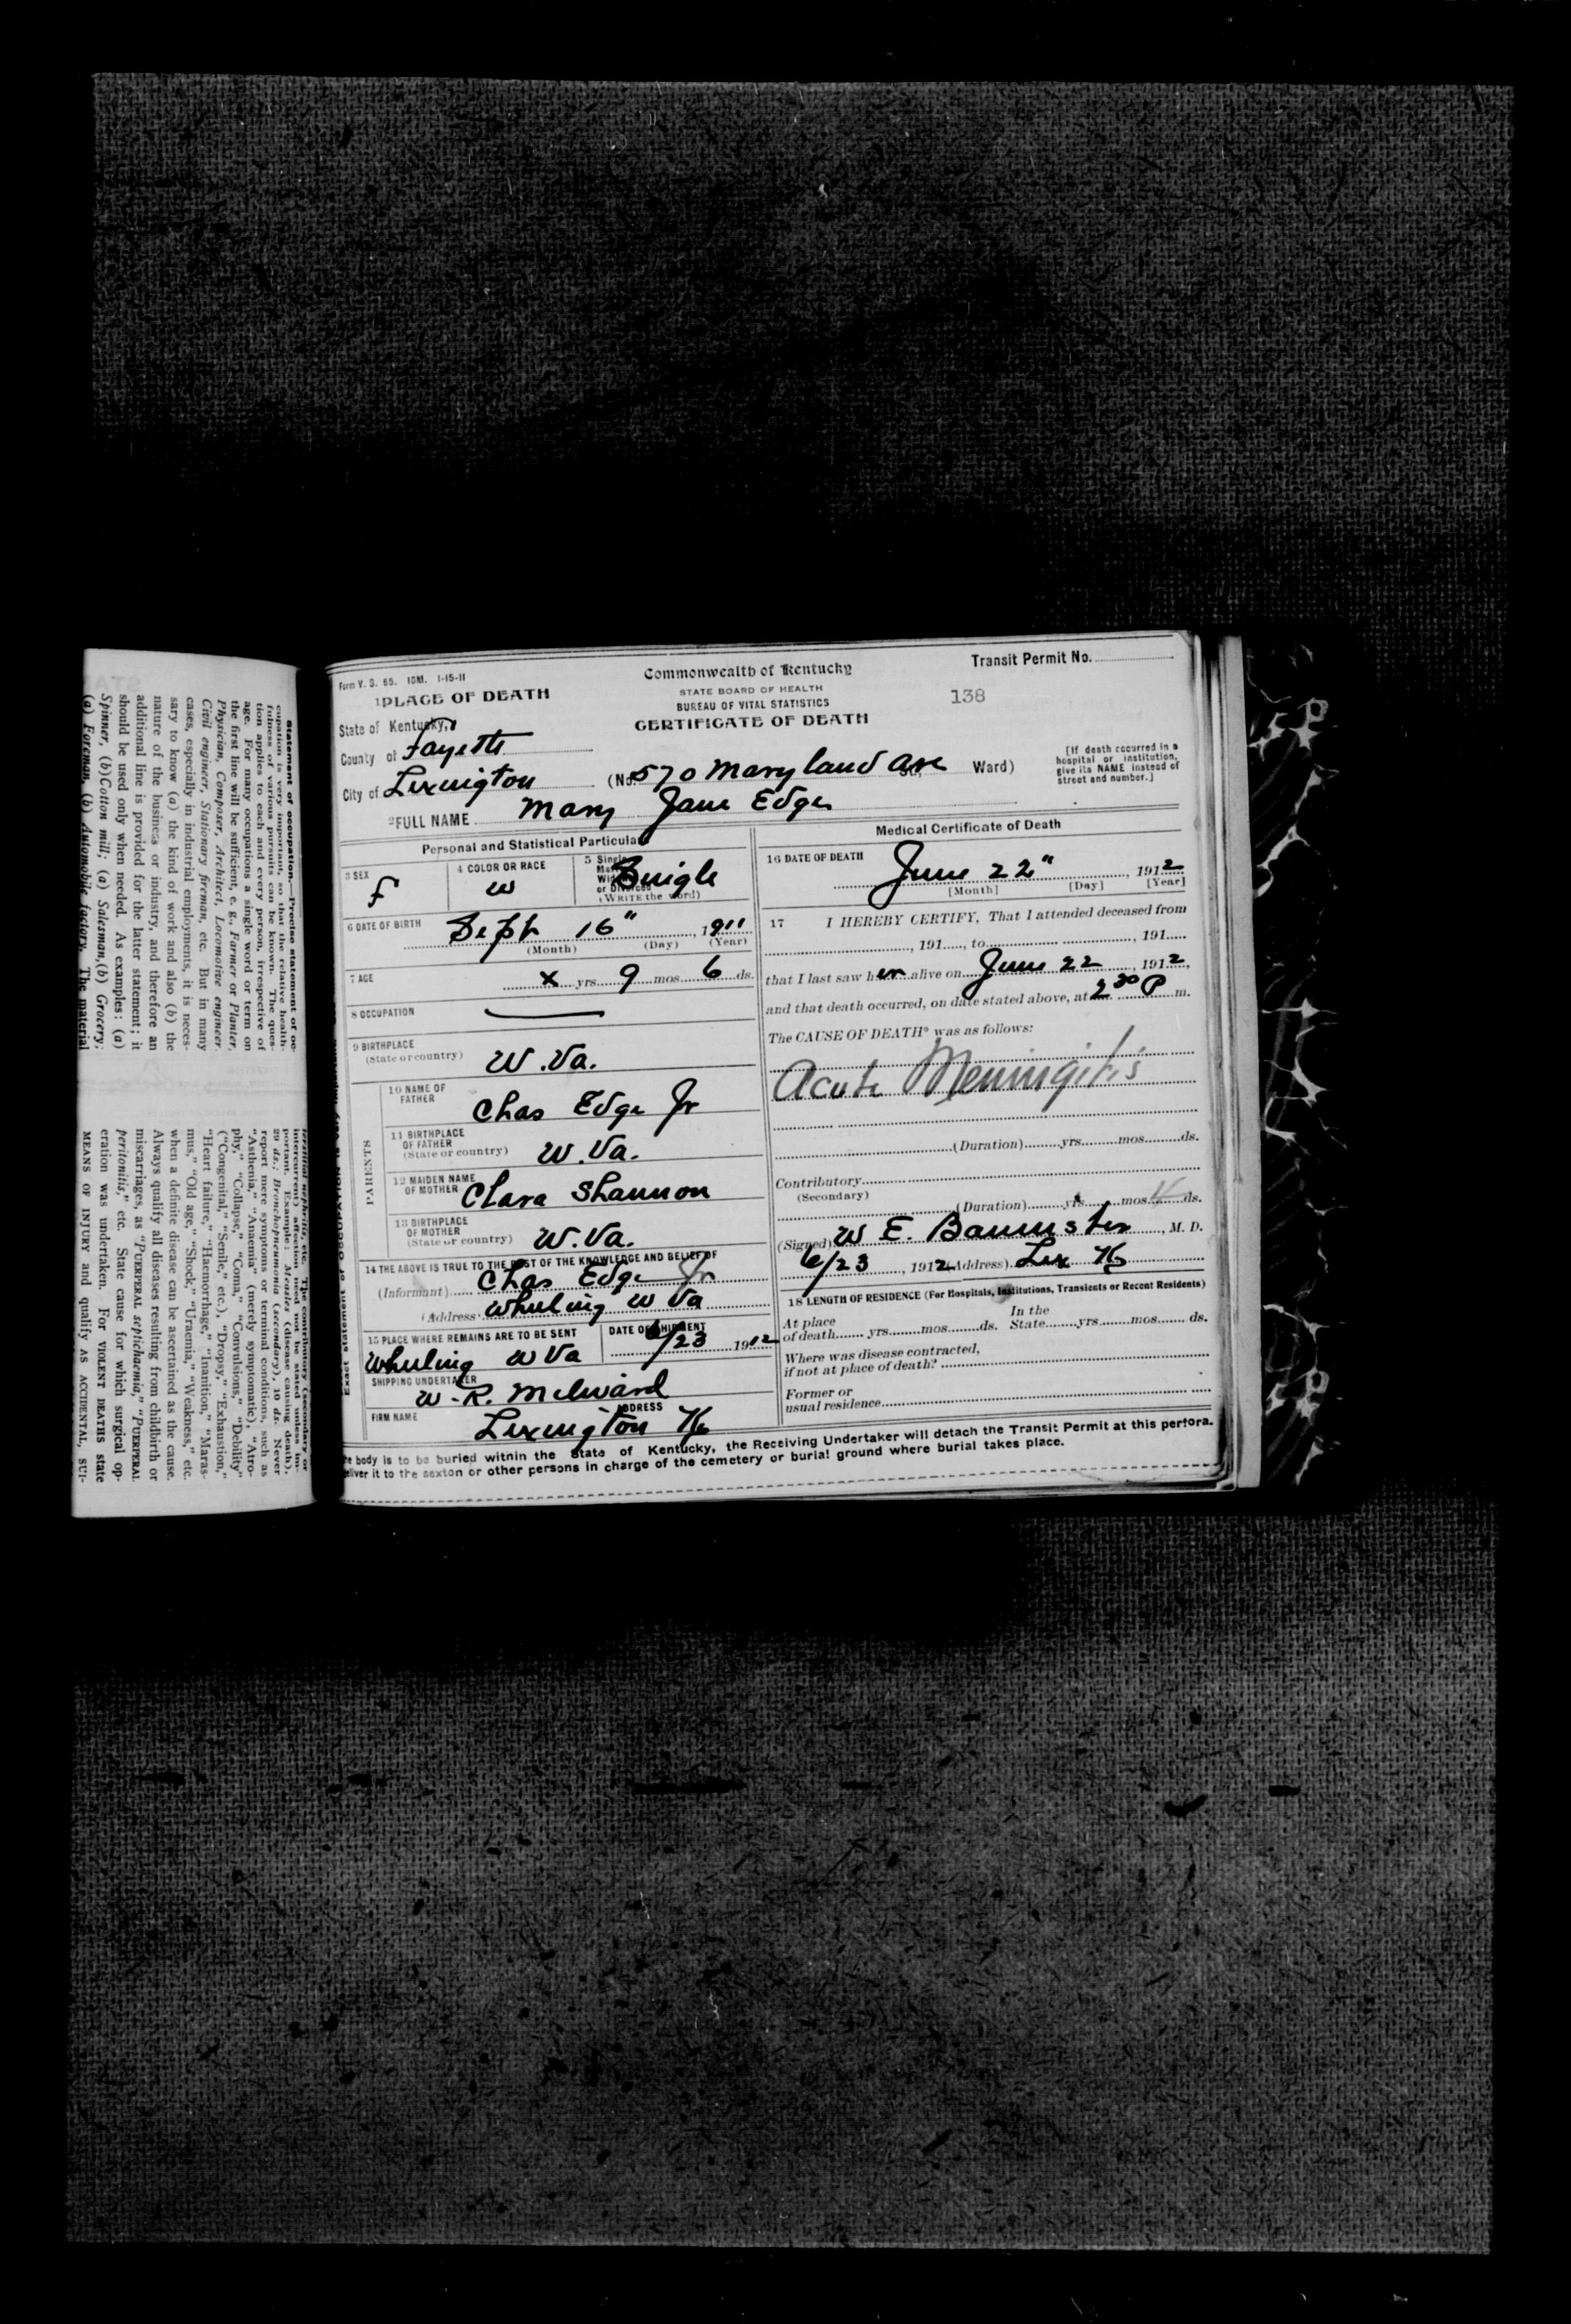 Statement of occupation.—Precise statement of oc-
cupation is very important, so that the relative health-
fulness of various pursuits can be known. The ques-
tion applies to each and every person, irrespective of
age. For many occupations a single word or term on
the first line will be sufficient, e. g., Farmer or Planter,
Physician, Composer, Architect, Locomotive engineer,
Civil engineer, Stationary fireman, etc. But in many
cases, especially in industrial employments, it is neces-
sary to know (a) the kind of work and also (b) the
nature of the business or industry, and therefore an
additional line is provided for the latter statement; it
should be used only when needed. As examples: (a)
Spinner, (b) Cotton mill; (a) Salesman, (b) Grocery;
(a) Foreman, (b) Automobile factory. The material
terstitial nephritis, etc. The contributory (secondary or
intercurrent) affection need not be stated unless im-
portant. Example: Measles (disease causing death),
29 ds.; Bronchopneumonia (secondary), 10 ds. Never
report mere symptoms or terminal conditions, such as
"Asthenia," "Anaemia" (merely symptomatic), "Atro-
phy," "Collapse," "Coma," "Convulsions," "Debility"
("Congenital," "Senile," etc.), "Dropsy," "Exhaustion,"
"Heart failure," "Haemorrhage," "Inanition," "Maras-
mus," "Old age," "Shock," "Uraemia," "Weakness," etc.
when a definite disease can be ascertained as the cause.
Always qualify all diseases resulting from childbirth or
miscarriages, as "PUERPERAL septichaemia," "PUERPERAL
peritonitis," etc. State cause for which surgical op-
eration was undertaken. For VIOLENT DEATHS state
MEANS OF INJURY and qualify as ACCIDENTAL, SUI-
Form V. S. 65. 10M. 1-15-11
Commonwealth of Kentucky
STATE BOARD OF HEALTH
BUREAU OF VITAL STATISTICS
CERTIFICATE OF DEATH
Transit Permit No.
138
1 PLACE OF DEATH
State of Kentucky,
County of Fayette
City of Lexington (No. 570 Maryland Ave St., Ward)
[If death occurred in a
hospital or institution,
give its NAME instead of
street and number.]
2 FULL NAME Mary Jane Edge
Personal and Statistical Particulars
3 SEX
f
4 COLOR OR RACE
w
5 Single
or Divorced
(WRITE the word)
Single
6 DATE OF BIRTH
Sept 16" , 1911
(Month) (Day) (Year)
7 AGE
x yrs. 9 mos. 6 ds.
8 OCCUPATION
9 BIRTHPLACE
(State or country) W. Va.
PARENTS
10 NAME OF
FATHER Chas Edge Jr
11 BIRTHPLACE
OF FATHER
(State or country) W. Va.
12 MAIDEN NAME
OF MOTHER Clara Shannon
13 BIRTHPLACE
OF MOTHER
(State or country) W. Va.
14 THE ABOVE IS TRUE TO THE BEST OF THE KNOWLEDGE AND BELIEF OF
(Informant) Chas Edge Jr
(Address Wheeling W Va
15 PLACE WHERE REMAINS ARE TO BE SENT
Wheeling W Va
DATE OF SHIPMENT
6/23 1912
SHIPPING UNDERTAKER
W. R. Milward
FIRM NAME ADDRESS
Lexington Ky
Medical Certificate of Death
16 DATE OF DEATH
June 22" , 1912
[Month] [Day] [Year]
17 I HEREBY CERTIFY, That I attended deceased from
, 191 , to , 191
that I last saw her alive on June 22 , 1912,
and that death occurred, on date stated above, at 2 30 P m.
The CAUSE OF DEATH* was as follows:
Acute Meningitis
(Duration) yrs. mos. ds.
Contributory
(Secondary)
(Duration) yrs. mos. ds.
(Signed) W E. Bannister , M. D.
6/23 , 1912 (Address) Lex Ky
18 LENGTH OF RESIDENCE (For Hospitals, Institutions, Transients or Recent Residents)
At place In the
of death yrs. mos. ds. State yrs. mos. ds.
Where was disease contracted,
if not at place of death?
Former or
usual residence
body is to be buried within the State of Kentucky, the Receiving Undertaker will detach the Transit Permit at this perfora.
it to the sexton or other persons in charge of the cemetery or burial ground where burial takes place.